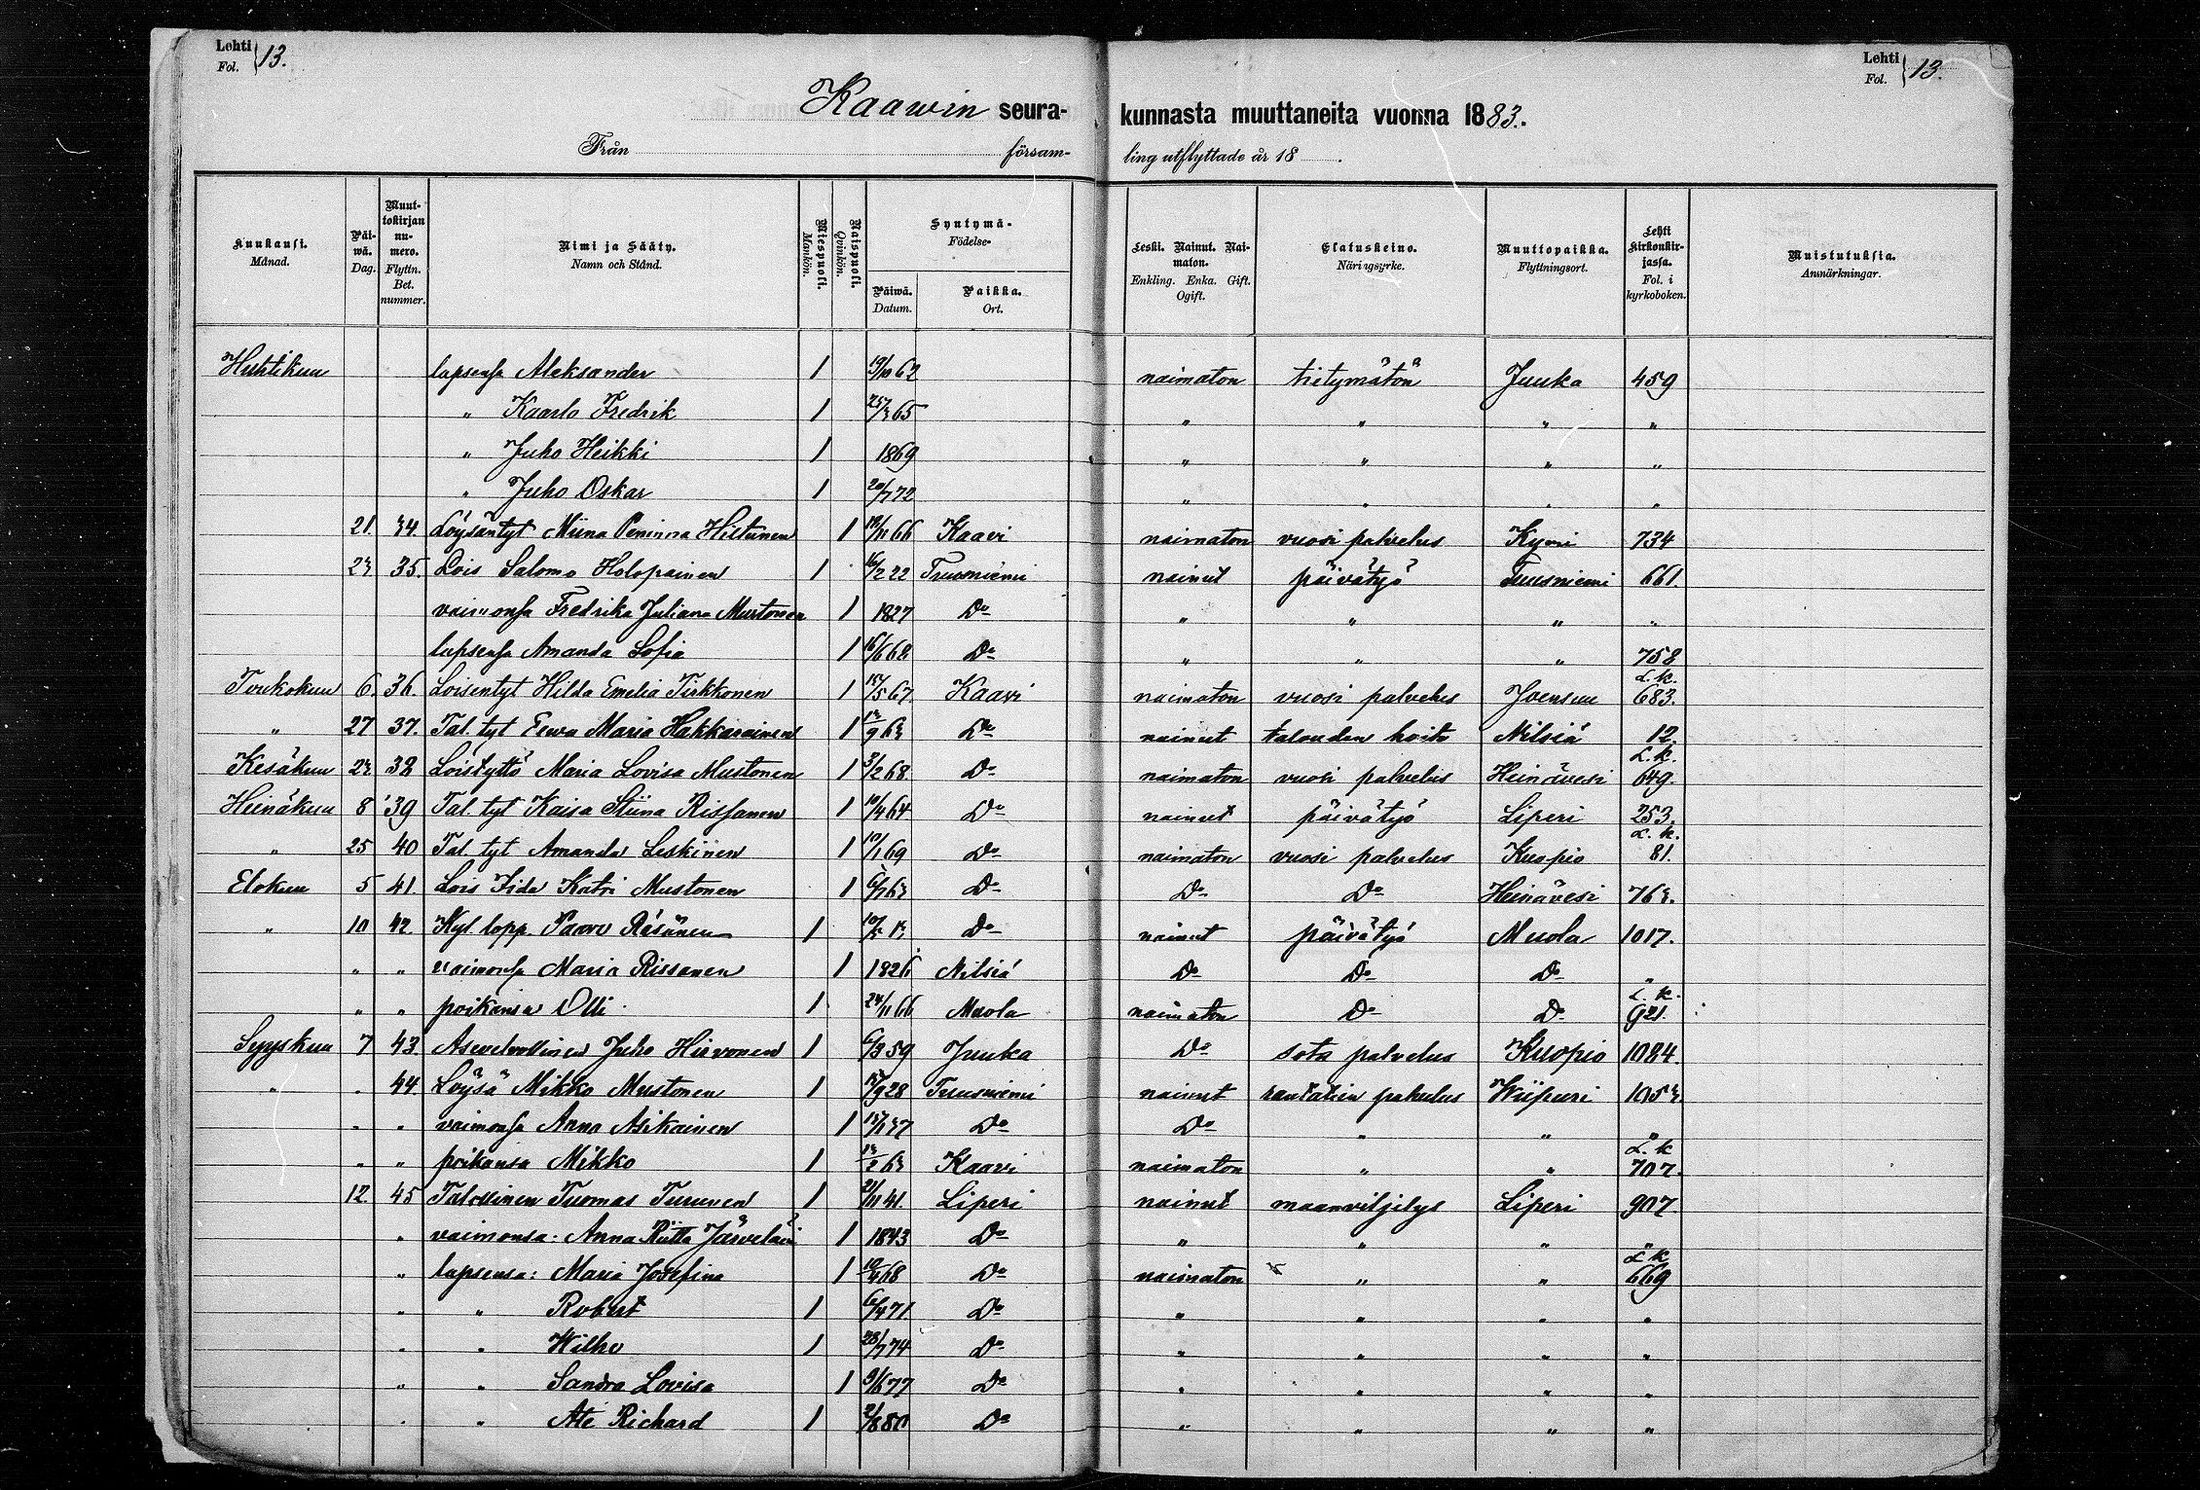 Lehti
Fol. 13.
Lehti
Fol. 13.
Kaawin seura- kunnasta muuttaneita vuonna 1883.
Från försam- ling utflyttade år 18 .
Kuukausi. Månad. Päi-wä. Dag. Muut-tokirjan nu-mero. Flyttn. Bet. nummer. Nimi ja Sääty. Namn och Stånd. Miespuoli. Mankön. Naispuoli. Qvinkön. Syntymä- Födelse- Päiwä. Datum. Paikka. Ort. Leski. Nainut. Nai-maton. Enkling. Enka. Gift. Ogift. Elatuskeino. Näringsyrke. Muuttopaikka. Flyttningsort. Lehti Kirkonkir-jassa. Fol. i kyrkoboken. Muistutuksia. Anmärkningar.
Huhtikuu lapsensa Aleksander 1 62 naimaton tietymätön Juuka 459
" Kaarlo Fredrik 1 65 " " " "
" Juho Heikki 1 1869 " " " "
" Juho Oskar 1 20/7 72 " " " "
21. 34. Löysäntyt Miina Peninna Hiltunen 1 66 Kaavi naimaton vuosi palvelus Kymi 734
23 35. Lois Salomo Holopainen 1 22 Tuusniemi nainut päivätyö Tuusniemi 661.
vaimonsa Fredrika Juliana Mustonen 1 1827 Do " " " "
lapsensa Amanda Sofia 1 16/6 68 Do " " " 758
Toukokuu 6. 36. Loisentyt Hilda Emelia Tirkkonen 1 67. Kaavi naimaton vuosi palvelus Joensuu L.k. 683.
" 27 37. Tal. tyt Eewa Maria Hakkarainen 1 63 Do nainut talouden hoito Nilsiä 12.
Kesäkuu 23 38 Loistyttö Maria Lovisa Mustonen 1 3/2 68. Do naimaton vuosi palvelus Heinävesi L.k. 649.
Heinäkuu 8 39 Tal. tyt Kaisa Stiina Rissanen 1 64 Do nainut päivätyö Liperi 253.
" 25 40 Tal tyt Amanda Leskinen 1 10/1 69 Do naimaton vuosi palvelus Kuopio L.k. 81.
Elokuu 5 41 Lois Iida Katri Mustonen 1 6/7 63 Do Do Do Heinävesi 763.
" 10 42 Hyl lopp. Paavo Räsänen 1 13 Do nainut päivätyö Muola 1017.
" " vaimonsa Maria Rissanen 1 1826 Nilsiä Do Do Do "
" " poikansa Olli 1 24/11 66 Muola naimaton Do Do L.k. 921.
Syyskuu 7 43. Asevelvollinen Juho Hirvonen 1 59 Juuka Do sota palvelus Kuopio 1084.
" " 44. Löysä Mikko Mustonen 1 28 Tuusniemi nainut rautatien palvelus Wiipuri 1053.
" " vaimonsa Anna Asikainen 1 37 Do Do " " "
" " poikansa Mikko 1 63 Kaavi naimaton " " L.k 707.
12. 45 Talollinen Tuomas Turunen 1 2/11 41. Liperi nainut maanviljelys Liperi 907
" vaimonsa: Anna Riitta Järveläin 1 1843 Do " " " "
" lapsensa: Maria Josefina 1 68 Do naimaton " " L.k 669
" " Robert 1 6/4 71. Do " " " "
" " Wilho 1 28/7 74 Do " " " "
" " Sandra Lovisa 1 9/6 77 Do " " " "
" " Ate Richard 1 2/8 80 Do " " " "